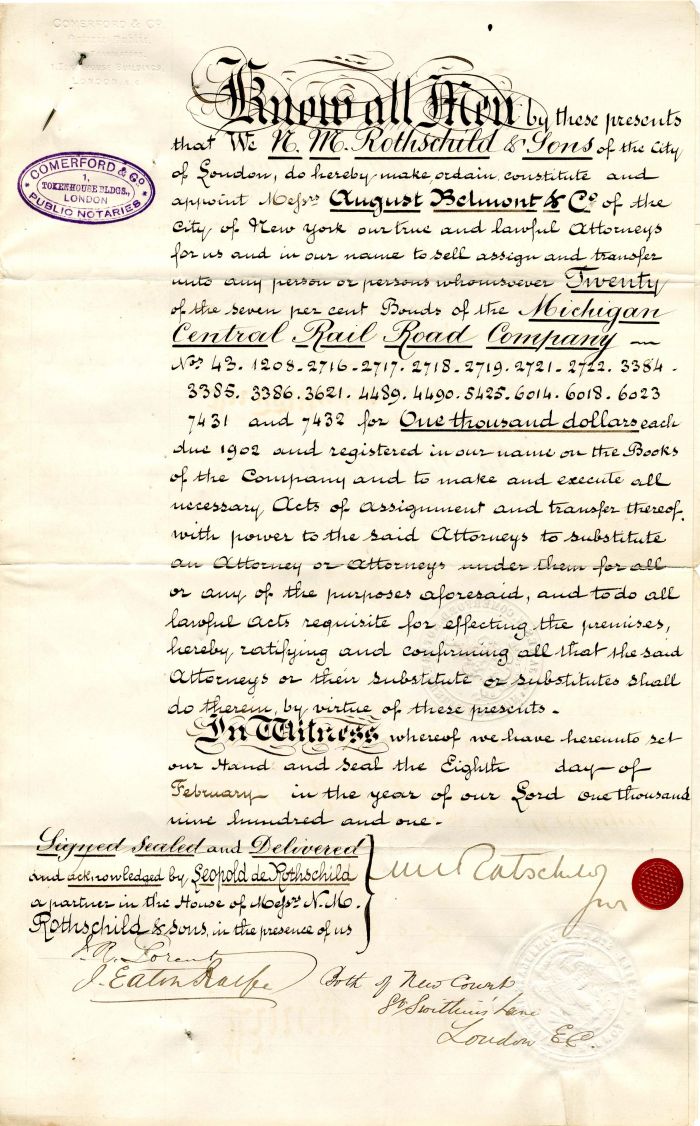 COMERFORD & Co.
LONDON, E.C.
COMERFORD & Co.
1,
TOKENHOUSE BLDGS.,
LONDON
PUBLIC NOTARIES
Know all Men by these presents
that We N. M. Rothschild & Sons of the City
of London, do hereby make, ordain, constitute and
appoint Messrs August Belmont & Co. of the
City of New York our true and lawful Attorneys
for us and in our name to sell assign and transfer
unto any person or persons whomsoever Twenty
of the seven per cent Bonds of the Michigan
Central Rail Road Company
Nos 43. 1208. 2716. 2717. 2718. 2719. 2721. 2722. 3384.
3385. 3386. 3621. 4489. 4490. 5425. 6014. 6018. 6023
7431 and 7432 for One thousand dollars each
due 1902 and registered in our name on the Books
of the Company and to make and execute all
necessary Acts of assignment and transfer thereof,
with power to the said Attorneys to substitute
an Attorney or Attorneys under them for all
or any of the purposes aforesaid, and to do all
lawful Acts requisite for effecting the premises,
hereby ratifying and confirming all that the said
Attorneys or their substitute or substitutes shall
do therein, by virtue of these presents.
In Witness whereof we have hereunto set
our Hand and Seal the Eighth day of
February in the year of our Lord one thousand
nine hundred and one.
Signed Sealed and Delivered
and acknowledged by Leopold de Rothschild
a partner in the House of Messrs N. M.
Rothschild & Sons, in the presence of us
J. Eaton
Both of New Court
St Swithins Lane
London EC.